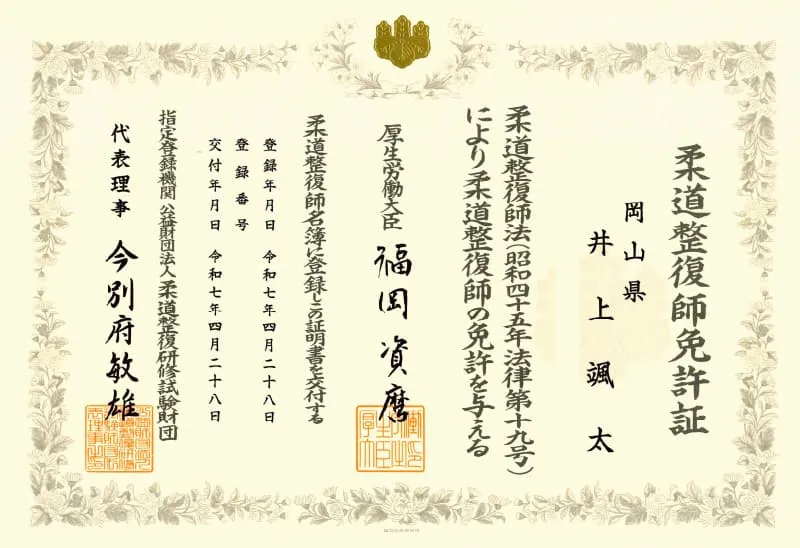 柔道整復師免許証
岡山県
井上颯太
柔道整復師法(昭和四十五年法律第十九号)
により柔道整復師の免許を与える
厚生労働大臣 福岡資麿
柔道整復師名簿に登録しこの証明書を交付する
登録年月日 令和七年四月二十八日
登録番号
交付年月日 令和七年四月二十八日
指定登録機関 公益財団法人 柔道整復研修試験財団
代表理事 今別府敏雄